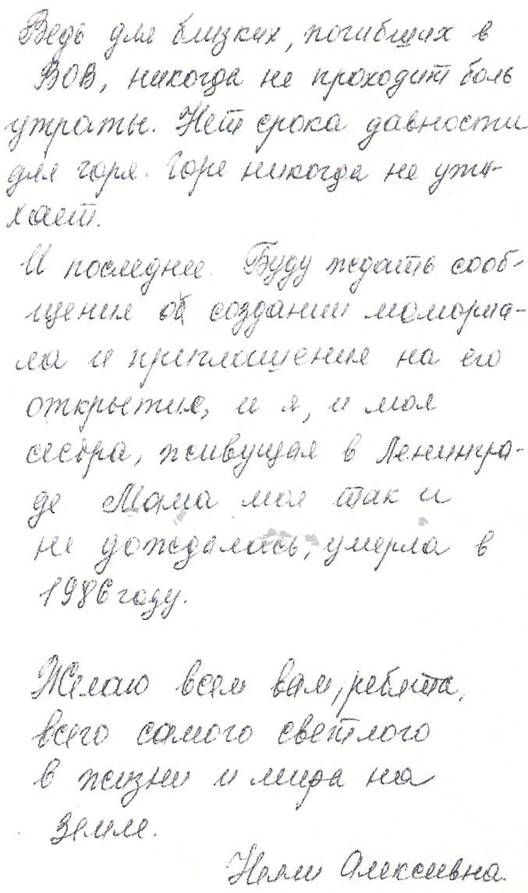 Ведь для близких, погибших в
ВОВ, никогда не проходит боль
утраты. Нет срока давности
для горя. Горе никогда не ути-
хает.
И последнее. Буду ждать сооб-
щения об создании мемориа-
ла и приглашения на его
открытие, и я, и моя
сестра, живущая в Ленингра-
де. Мама моя так и
не дождалась, умерла в
1986 году.
Желаю всем вам, ребята,
всего самого светлого
в жизни и мира на
земле.
Нели Алексеевна.